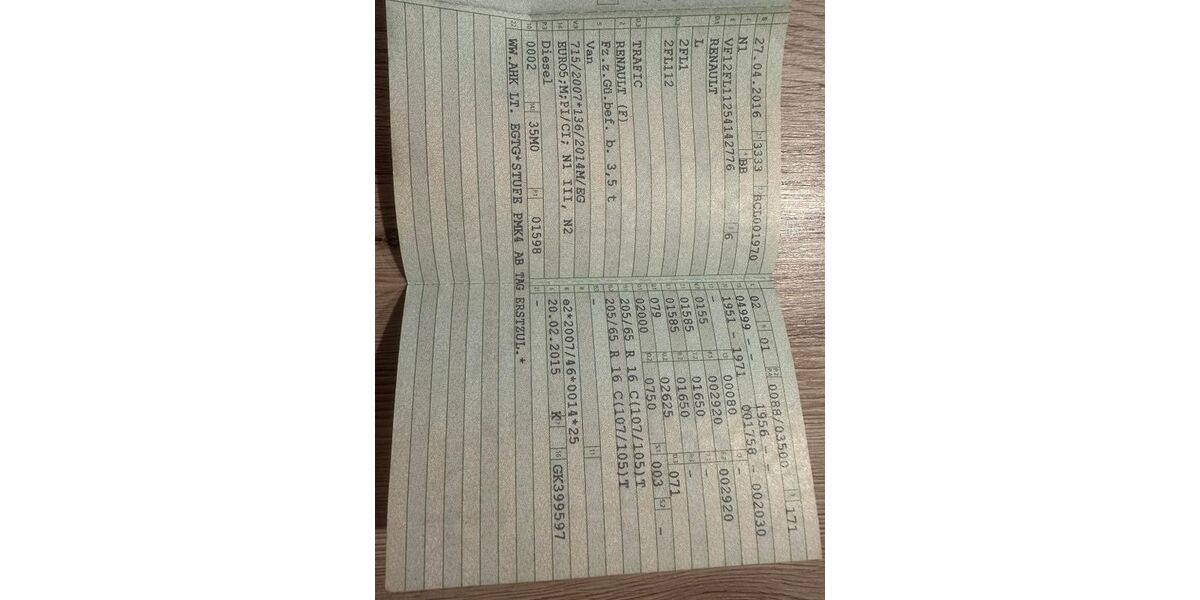 27.04.2016 3333 BCL001970
N1 BB
VF12FL11254142776 6
RENAULT
L
2FL1
2FL112
TRAFIC
RENAULT (F)
Fz.z.Gü.bef. b. 3,5 t
Van
715/2007*136/2014M/EG
EURO5;M;PI/CI; N1 III, N2
Diesel
0002 35M0 01598
WW.AHK LT. EGTG*STUFE PMK4 AB TAG ERSTZUL.*
02 01 0088/03500 171
04999 - - 1956 - -
1951 - 1971 001758 - 002030
- 00080 -
0155 002920 002920
01585 01650 -
01585 01650 -
079 02625 071
02000 0750 003 -
205/65 R 16 C(107/105)T
205/65 R 16 C(107/105)T
-
e2*2007/46*0014*25
20.02.2015 K GK399597
-